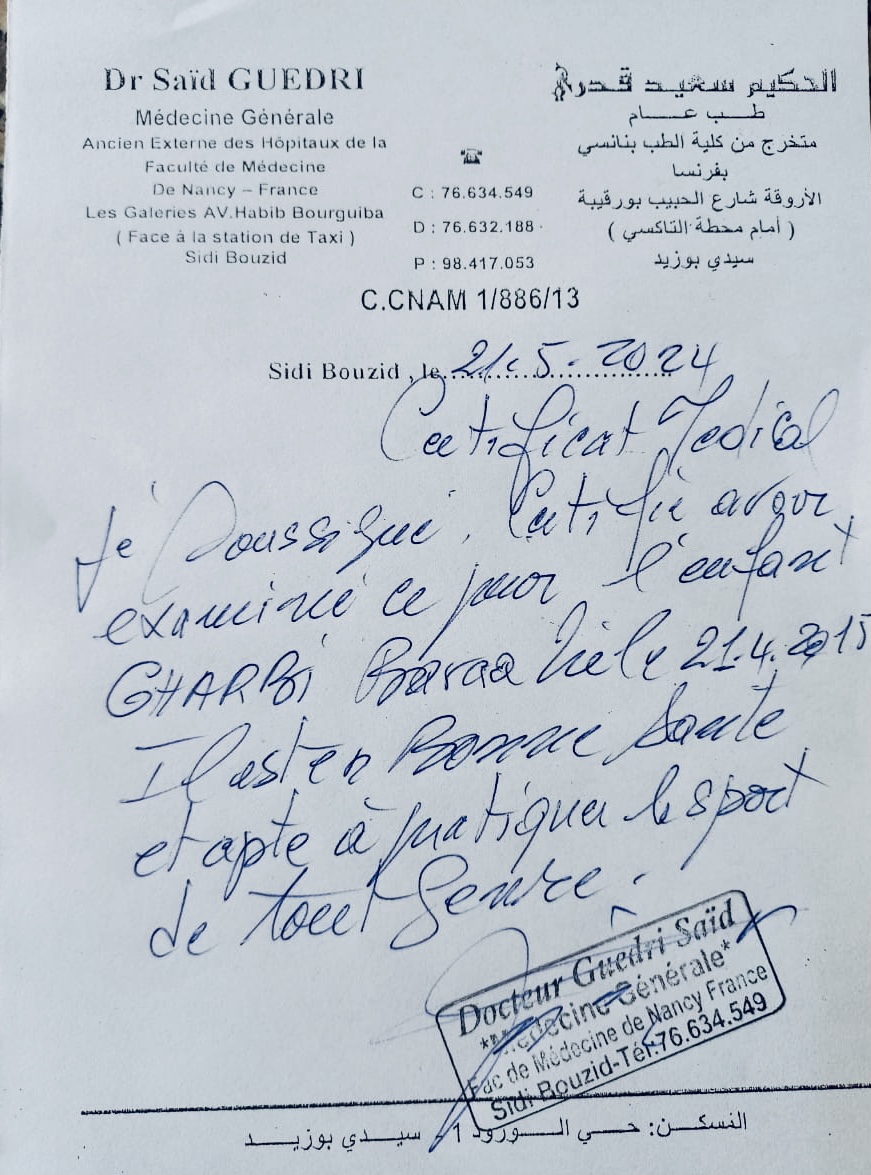 Dr Saïd GUEDRI
Médecine Générale
Ancien Externe des Hôpitaux de la
Faculté de Médecine
De Nancy – France
Les Galeries AV.Habib Bourguiba
( Face à la station de Taxi )
Sidi Bouzid
☎
C : 76.634.549
D : 76.632.188
P : 98.417.053
الحكيم سعيد قدري
طب عام
متخرج من كلية الطب بنانسي
بفرنسا
الأروقة شارع الحبيب بورقيبة
( أمام محطة التاكسي )
سيدي بوزيد
C.CNAM 1/886/13
Sidi Bouzid , le 21.5.2024
Certificat Médical
Je Soussigné, Certifie avoir
examiné ce jour l'enfant
GHARBi Baraa Né le 21.4.2015
Il est en Bonne Santé
et apte à pratiquer le sport
de tout Genre.
Docteur Guedri Saïd
*Médecine Générale*
Fac de Médecine de Nancy France
Sidi Bouzid-Tél:76.634.549
النسكن: حي الورود 1 - سيدي بوزيد